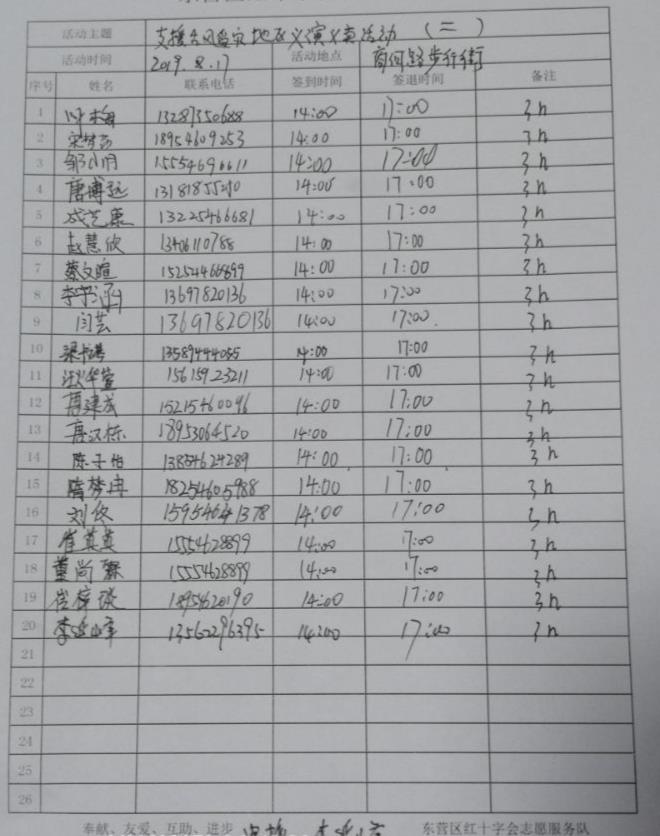 活动主题 支援台风受灾地区义演义卖活动（二）
活动时间 2019.8.17 活动地点 商河路步行街
序号 姓名 联系电话 签到时间 签退时间 备注
1 13287350688 14:00 17:00 3h
2 18954609253 14:00 17:00 3h
3 邹小明 15554696611 14:00 17:00 3h
4 唐博远 13181855210 14:00 17:00 3h
5 成艺康 13225466681 14:00 17:00 3h
6 赵慧欣 13406110788 14:00 17:00 3h
7 蔡文暄 15254466899 14:00 17:00 3h
8 李宇涵 13697820136 14:00 17:00 3h
9 闫芸 13697820136 14:00 17:00 3h
10 13589444055 14:00 17:00 3h
11 15615923211 14:00 17:00 3h
12 15215460096 14:00 17:00 3h
13 18953064520 14:00 17:00 3h
14 陈子怡 13854624289 14:00 17:00 3h
15 隋梦冉 18254605988 14:00 17:00 3h
16 刘佟 15954641378 14:00 17:00 3h
17 崔真真 15554628899 14:00 17:00 3h
18 15554628899 14:00 17:00 3h
19 18954620190 14:00 17:00 3h
20 13562296395 14:00 17:00 3h
21
22
23
24
25
26
奉献、友爱、互助、进步 东营区红十字会志愿服务队